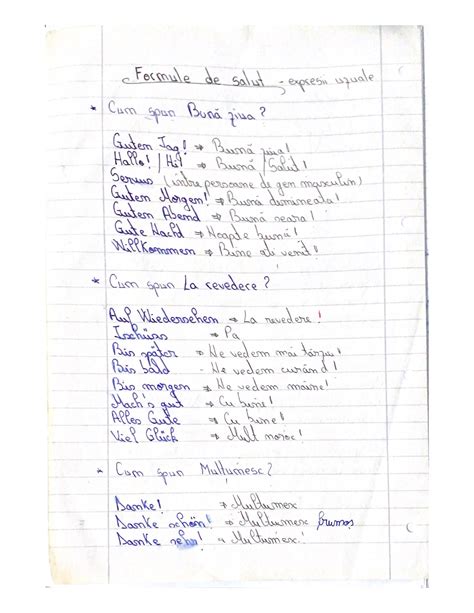 Formule de salut - expresii uzuale
* Cum spun Bună ziua?
Gutem Tag! → Bună ziua!
Hallo! / Hi! → Bună / Salut!
Servus (intre persoane de gen masculin)
Guten Morgen! → Bună dimineata!
Gutem Abend → Bună seara!
Gute Nacht → Noapte bună!
Willkommen → Bine ati venit!
* Cum spun La revedere?
Auf Wiedersehen → La revedere!
Tschüss → Pa
Bis später → Ne vedem mai târziu!
Bis bald - Ne vedem curând!
Bis morgen → Ne vedem maine!
Mach's gut → Cu bine!
Alles Gute → Cu bine!
Viel Glück → Mult noroc!
* Cum spun Multumesc?
Danke! → Multumex
Danke schön! → Multumex frumos
Danke sehr! → Multumex!